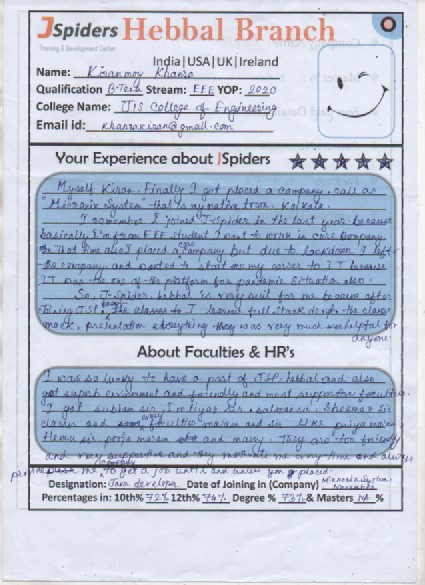 JSpiders Hebbal Branch
Training & Development Center
India|USA|UK|Ireland
Name: Kiranmoy Khanra
Qualification B.Tech Stream: EEE YOP: 2020
College Name: JIS College of Engineering
Email id: khanrakiran@gmail.com
Your Experience about JSpiders
Myself Kiran. Finally I got placed a company, call as
"Micronix System" that is my native from Kolkata.
I remember I joined J-spider in the last year because
basically I'm from EEE student I want to work in core Company
In that time also I placed a core company but due to lockdown I left
the company and to start on my career to IT because
IT was the one of the platform for pandemic situation also.
So, J-Spider, hebbal is very best for me because after
JSP, the classes to I learned full stack the classes
mock, presentation everything they was very much helpful for
anyone.
About Faculties & HR's
I was so lucky to have a part of JSP, hebbal and also
got superb environment and friendly and most supportive faculties.
I got subham sir, Imtiyaz sir, sir, sir
and every faculties maam and sir like priya maam
sir pooja maam and many. They are too friendly
and very supportive and they motivate me every time and always
me to get a job until and unless you placed.
Designation: Java developer Date of Joining in (Company) Micronix System November
Percentages in: 10th% 72% 12th% 74% Degree % 73% & Masters NA %